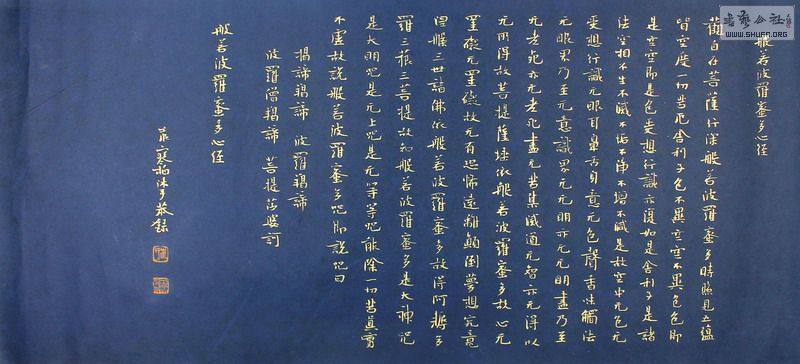 般若波羅蜜多心經
觀自在菩薩行深般若波羅蜜多時照見五蘊
皆空度一切苦厄舍利子色不異空空不異色色即
是空空即是色受想行識亦復如是舍利子是諸
法空相不生不滅不垢不淨不增不減是故空中无色无
受想行識无眼耳鼻舌身意无色聲香味觸法
无眼界乃至无意識界无无明亦无无明盡乃至
无老死亦无老死盡无苦集滅道无智亦无得以
无所得故菩提薩埵依般若波羅蜜多故心无
罣礙无罣礙故无有恐怖遠離顛倒夢想究竟
涅槃三世諸佛依般若波羅蜜多故得阿耨多
羅三藐三菩提故知般若波羅蜜多是大神咒
是大明咒是无上咒是无等等咒能除一切苦真實
不虛故說般若波羅蜜多咒即說咒曰
揭諦揭諦 波羅揭諦
波羅僧揭諦 菩提莎婆訶
般若波羅蜜多心經
崔寒柏沐手恭錄
書藝公社
WWW.SHUFA.ORG